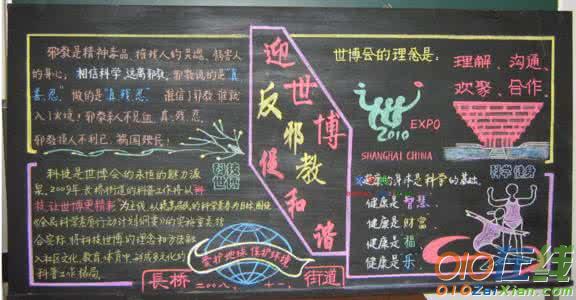 邪教是精神毒品，摧残人的灵魂，伤害人
的身心，相信科学，远离邪教。邪教说的是“真
善忍”做的是“真残忍”谁信了邪教谁就
入了火坑！邪教杀人不见血 真残忍
邪教损人不利己，祸国殃民！
迎世博
反邪教
促和谐
世博会的理念是：
理解、沟通、
欢聚、合作。
EXPO
2010
SHANGHAI CHINA
科技
世博
科技是世博会的永恒的魅力源
泉。2009年长桥街道的科普工作将以科
技让世博更精彩为主线，以提高居民的科学素养为目标，围绕
《全民科学素质行动计划纲要》的实施
合实际，将科技世博的理念和方法融
入社区文化、教育、体育中，形成多元化的
科普工作格局。
爱护地球 保护环境
長桥
二〇〇八、十一、
街道
科学健身
健康的身体是科学的基础。
健康是智慧、
健康是财富、
健康是福、
健康是乐、
010在线
010ZaiXian.com